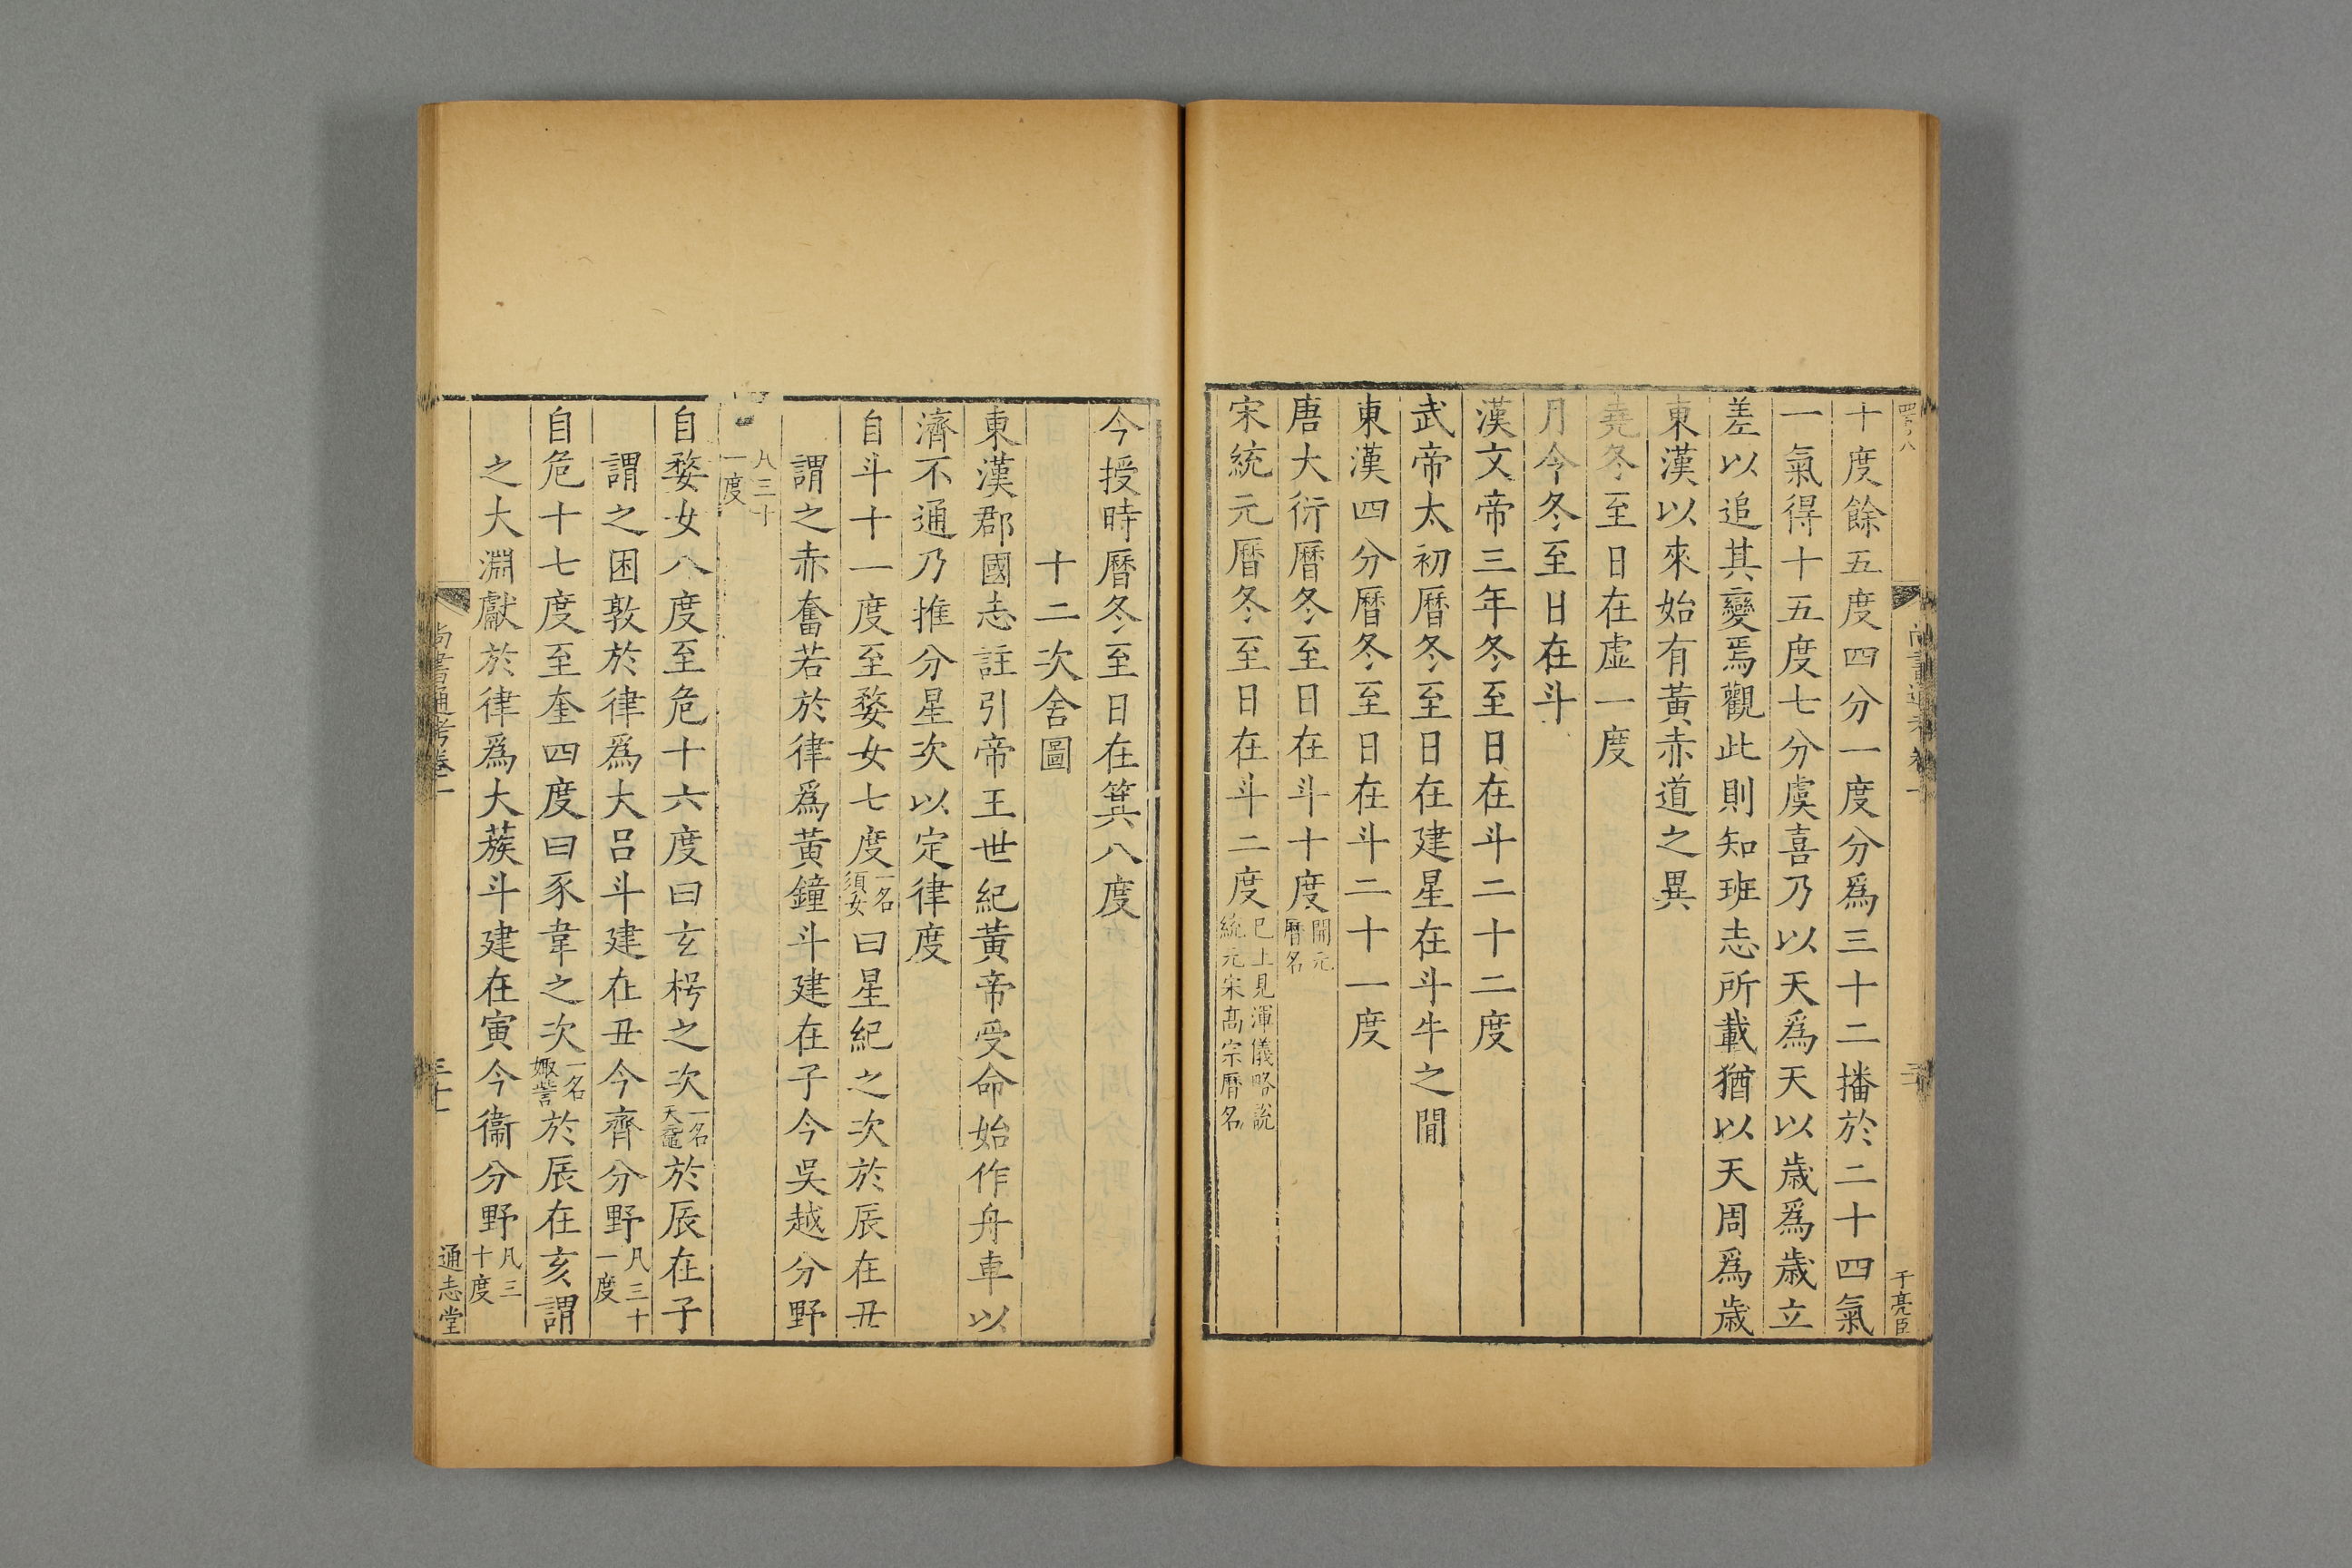 十度餘五度四分一度分爲三十二播於二十四氣
一氣得十五度七分虞喜乃以天爲天以歳爲歳立
差以追其變焉觀此則知班志所載猶以天周爲歳
東漢以來始有黃赤道之異
堯冬至日在虛一度
月令冬至日在斗
漢文帝三年冬至日在斗二十二度
武帝太初曆冬至日在建星在斗牛之閒
東漢四分曆冬至日在斗二十一度
唐大衍曆冬至日在斗十度開元曆名
宋統元曆冬至日在斗二度已上見渾儀略說統元宋高宗曆名
于亮臣
今授時曆冬至日在箕八度
十二次舍圖
東漢郡國志註引帝王世紀黃帝受命始作舟車以
濟不通乃推分星次以定律度
自斗十一度至婺女七度一名須女曰星紀之次於辰在丑
謂之赤奮若於律爲黃鐘斗建在子今吳越分野
凡三十一度
自婺女八度至危十六度曰玄枵之次一名天黿於辰在子
謂之困敦於律爲大呂斗建在丑今齊分野凡三十一度
自危十七度至奎四度曰豕韋之次一名娵訾於辰在亥謂
之大淵獻於律爲大蔟斗建在寅今衞分野凡三十度
尚書通考卷一
通志堂